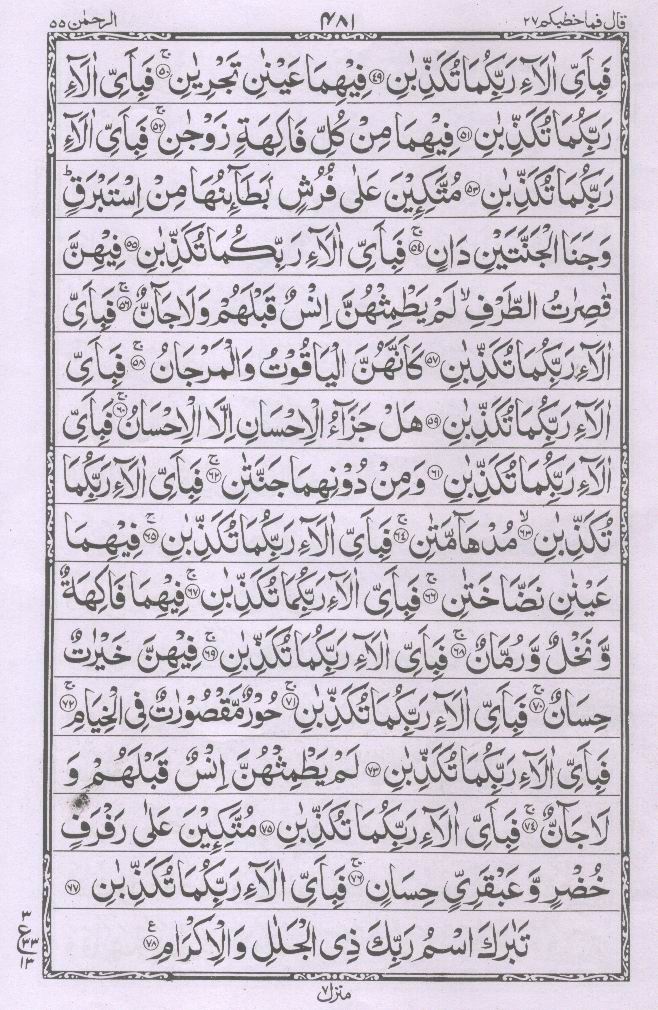 قال فما خطبکم ٢٧ ۴٨١ الرحمٰن ٥٥
فَبِاَیِّ اٰلَآءِ رَبِّكُمَا تُكَذِّبٰنِ ﴿٤٩﴾ فِيْهِمَا عَيْنٰنِ تَجْرِيٰنِ ﴿٥٠﴾ۚ فَبِاَیِّ اٰلَآءِ
رَبِّكُمَا تُكَذِّبٰنِ ﴿٥١﴾ فِيْهِمَا مِنْ كُلِّ فَاكِهَةٍ زَوْجٰنِ ﴿٥٢﴾ۚ فَبِاَیِّ اٰلَآءِ
رَبِّكُمَا تُكَذِّبٰنِ ﴿٥٣﴾ مُتَّكِـِٕيْنَ عَلٰی فُرُشٍۭ بَطَآىِٕنُهَا مِنْ اِسْتَبْرَقٍ ؕ
وَجَنَا الْجَنَّتَيْنِ دَانٍ ﴿٥٤﴾ۚ فَبِاَیِّ اٰلَآءِ رَبِّكُمَا تُكَذِّبٰنِ ﴿٥٥﴾ فِيْهِنَّ
قٰصِرٰتُ الطَّرْفِ ۙ لَمْ يَطْمِثْهُنَّ اِنْسٌ قَبْلَهُمْ وَلَا جَآنٌّ ﴿٥٦﴾ۚ فَبِاَیِّ
اٰلَآءِ رَبِّكُمَا تُكَذِّبٰنِ ﴿٥٧﴾ۚ كَاَنَّهُنَّ الْيَاقُوْتُ وَالْمَرْجَانُ ﴿٥٨﴾ۚ فَبِاَیِّ
اٰلَآءِ رَبِّكُمَا تُكَذِّبٰنِ ﴿٥٩﴾ هَلْ جَزَآءُ الْاِحْسَانِ اِلَّا الْاِحْسَانُ ﴿٦٠﴾ۚ فَبِاَیِّ
اٰلَآءِ رَبِّكُمَا تُكَذِّبٰنِ ﴿٦١﴾ وَمِنْ دُوْنِهِمَا جَنَّتٰنِ ﴿٦٢﴾ۚ فَبِاَیِّ اٰلَآءِ رَبِّكُمَا
تُكَذِّبٰنِ ﴿٦٣﴾ۙ مُدْهَآمَّتٰنِ ﴿٦٤﴾ۚ فَبِاَیِّ اٰلَآءِ رَبِّكُمَا تُكَذِّبٰنِ ﴿٦٥﴾ۚ فِيْهِمَا
عَيْنٰنِ نَضَّاخَتٰنِ ﴿٦٦﴾ۚ فَبِاَیِّ اٰلَآءِ رَبِّكُمَا تُكَذِّبٰنِ ﴿٦٧﴾ۚ فِيْهِمَا فَاكِهَةٌ
وَّ نَخْلٌ وَّ رُمَّانٌ ﴿٦٨﴾ۚ فَبِاَیِّ اٰلَآءِ رَبِّكُمَا تُكَذِّبٰنِ ﴿٦٩﴾ۚ فِيْهِنَّ خَيْرٰتٌ
حِسَانٌ ﴿٧٠﴾ۚ فَبِاَیِّ اٰلَآءِ رَبِّكُمَا تُكَذِّبٰنِ ﴿٧١﴾ۚ حُوْرٌ مَّقْصُوْرٰتٌ فِی الْخِيَامِ ﴿٧٢﴾ۚ
فَبِاَیِّ اٰلَآءِ رَبِّكُمَا تُكَذِّبٰنِ ﴿٧٣﴾ۚ لَمْ يَطْمِثْهُنَّ اِنْسٌ قَبْلَهُمْ وَ
لَا جَآنٌّ ﴿٧٤﴾ۚ فَبِاَیِّ اٰلَآءِ رَبِّكُمَا تُكَذِّبٰنِ ﴿٧٥﴾ مُتَّكِـِٕيْنَ عَلٰی رَفْرَفٍ
خُضْرٍ وَّ عَبْقَرِیٍّ حِسَانٍ ﴿٧٦﴾ۚ فَبِاَیِّ اٰلَآءِ رَبِّكُمَا تُكَذِّبٰنِ ﴿٧٧﴾
تَبٰرَكَ اسْمُ رَبِّكَ ذِی الْجَلٰلِ وَ الْاِكْرَامِ ﴿٧٨﴾ع
٣
ع ٣٣
١٣
منزل ٧